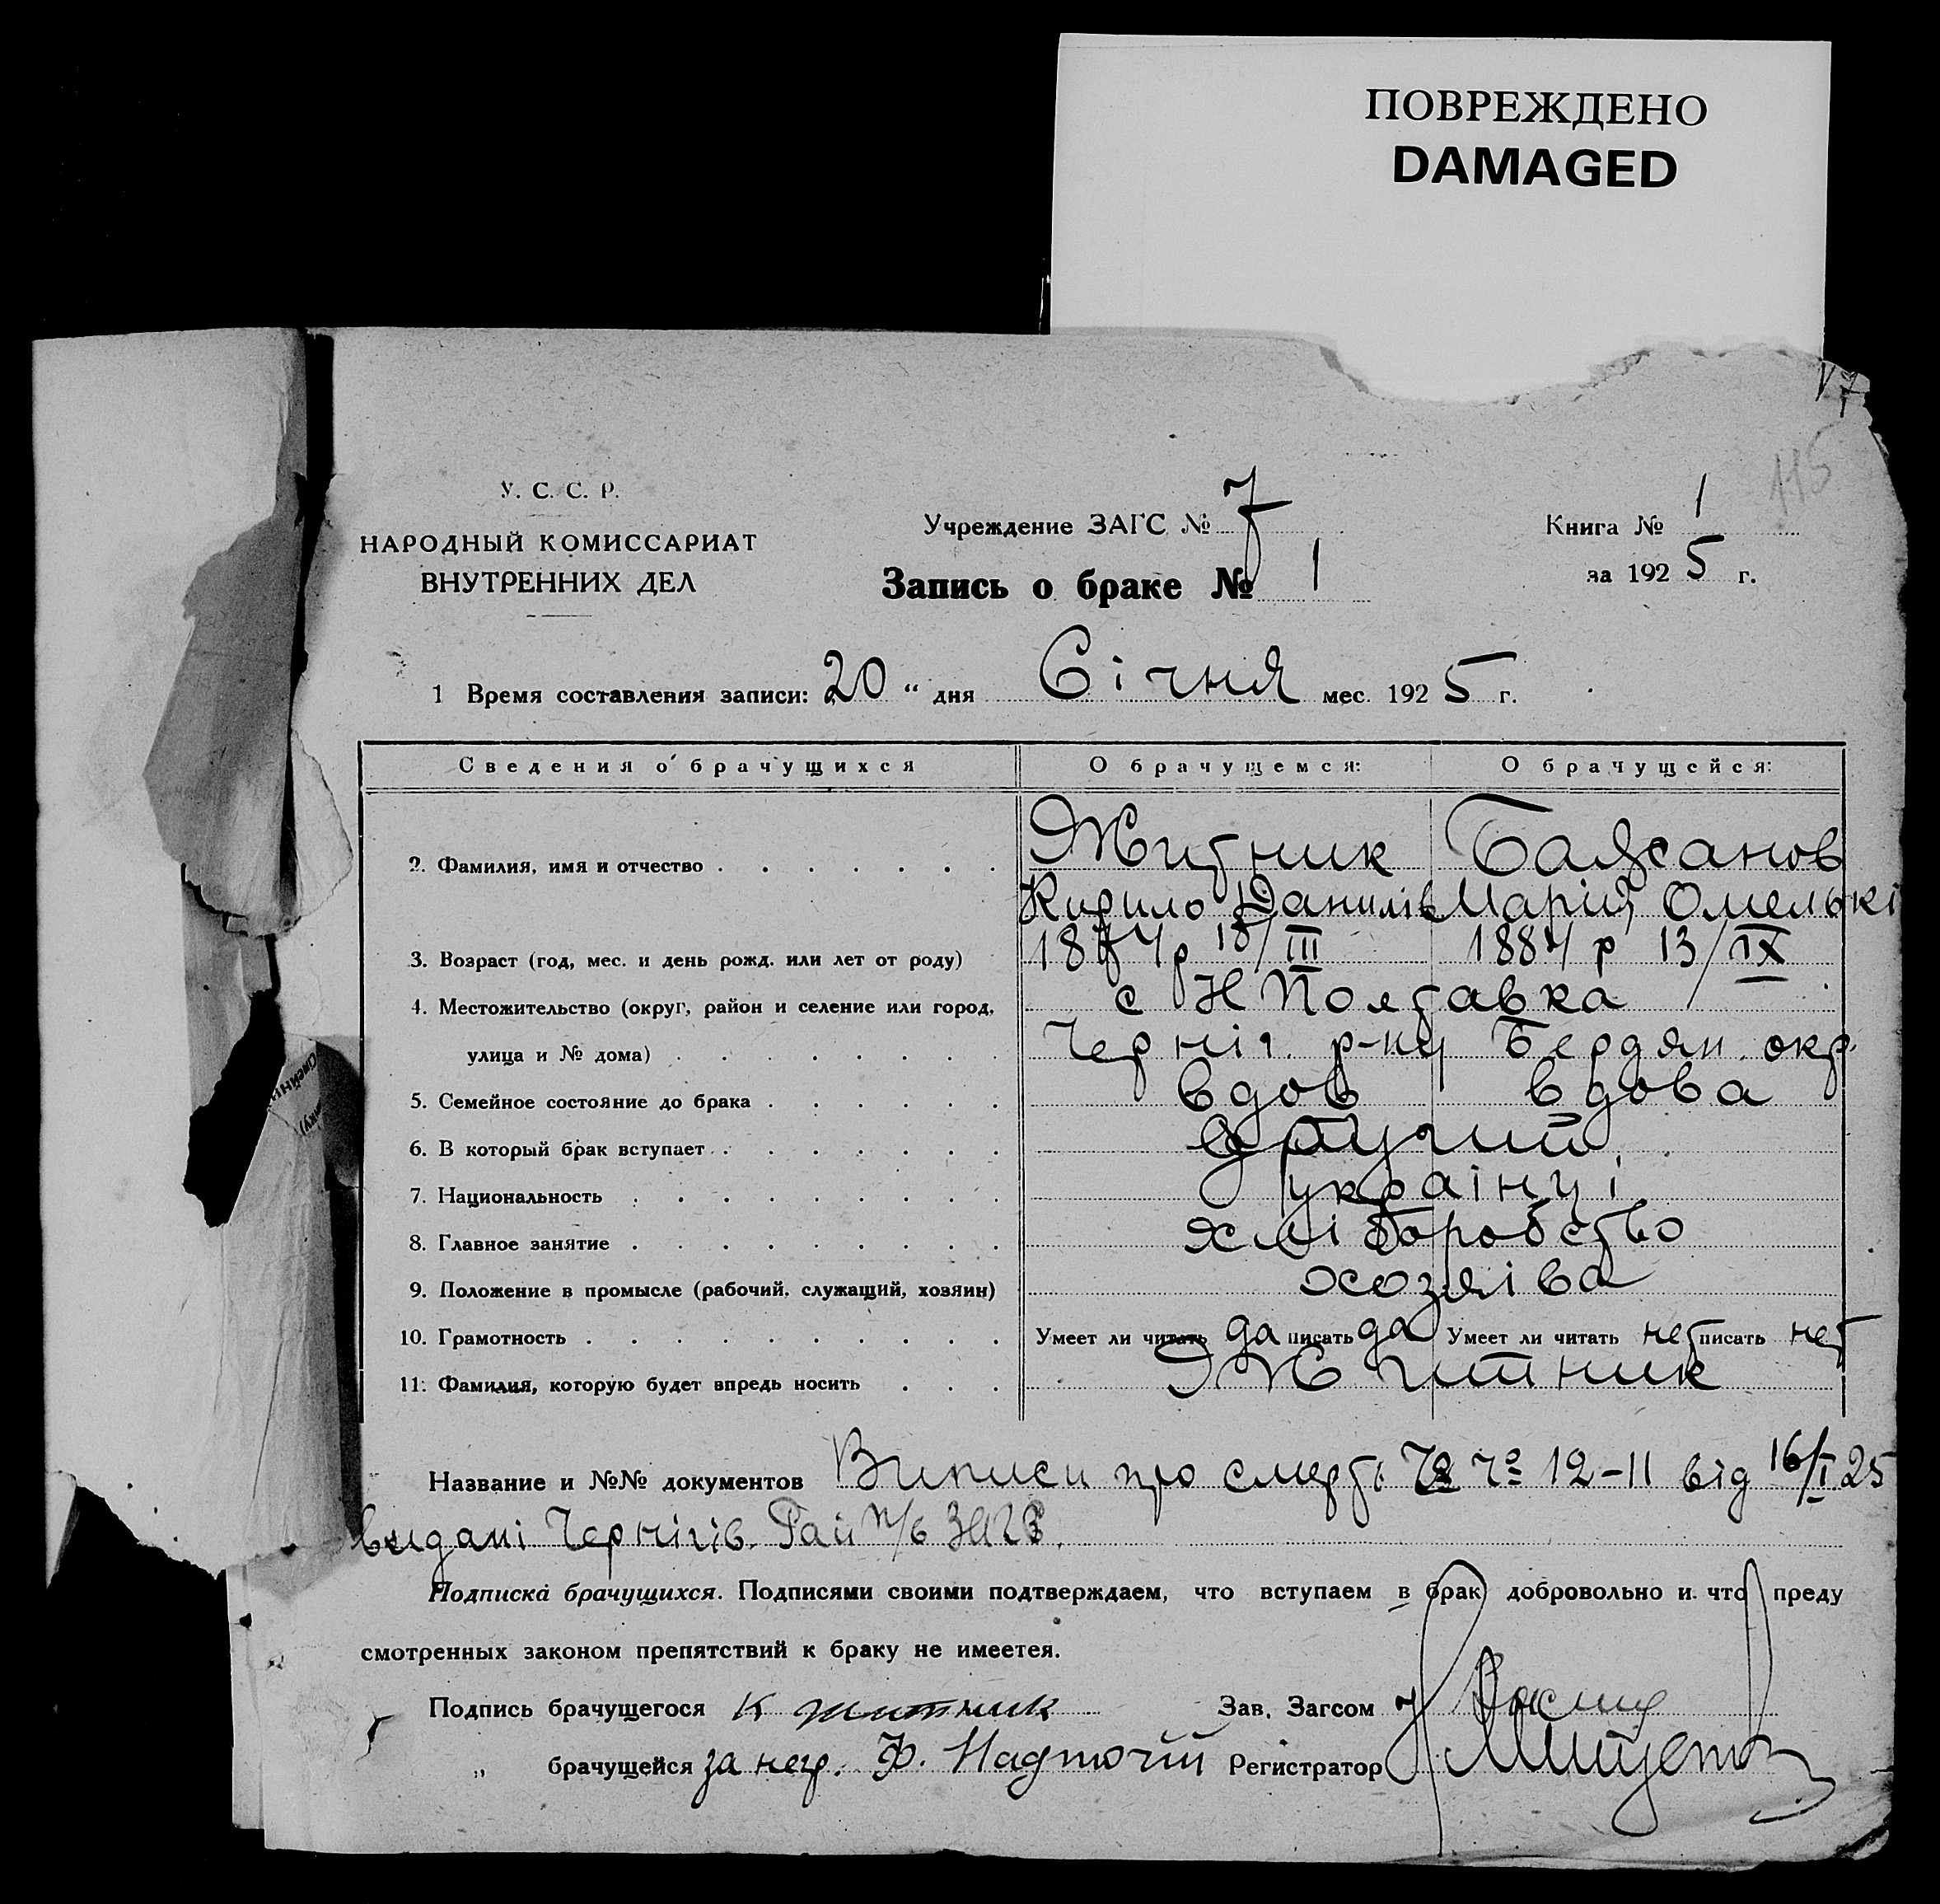 ПОВРЕЖДЕНО
DAMAGED
17
115
У. С. С. Р.
НАРОДНЫЙ КОМИССАРИАТ
ВНУТРЕННИХ ДЕЛ
Учреждение ЗАГС № 7
Запись о браке № 1
Книга № 1
за 1925 г.
1 Время составления записи: 20 “ дня Січня мес. 1925 г.
Сведения о брачущихся О брачущемся: О брачущейся:
2. Фамилия, имя и отчество Житник Баясанов
Кирило Данилів Марія Омелькі
3. Возраст (год, мес. и день рожд. или лет от роду) 1874 р 18/III 1884 р 13/IX
4. Местожительство (округ, район и селение или город, с Н Полтавка
улица и № дома) Черніг. р-ну Бердян. окр.
5. Семейное состояние до брака вдов вдова
6. В который брак вступает другий
7. Национальность українці
8. Главное занятие хліборобство
9. Положение в промысле (рабочий, служащий, хозяин) хозяіва
10. Грамотность Умеет ли читать да писать да Умеет ли читать нет писать нет
11. Фамилия, которую будет впредь носить Житник
Название и №№ документов Виписи про смерть ч 12-11 від 16/I 25
видані Чернігів. Рай п/в ЗАГС.
Подписка брачущихся. Подписями своими подтверждаем, что вступаем в брак добровольно и что преду
смотренных законом препятствий к браку не имеетея.
Подпись брачущегося К Житник Зав. Загсом
„ брачущейся за негр. Ф. Надточій Регистратор